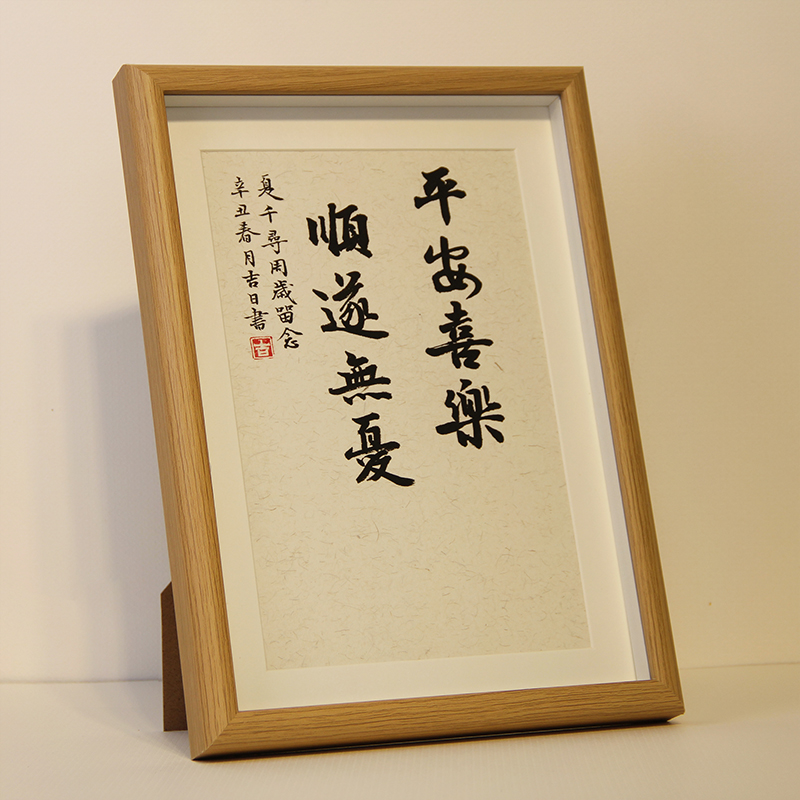 平安喜樂
順遂無憂
夏千尋用歲留念
辛丑春月吉日書
吉